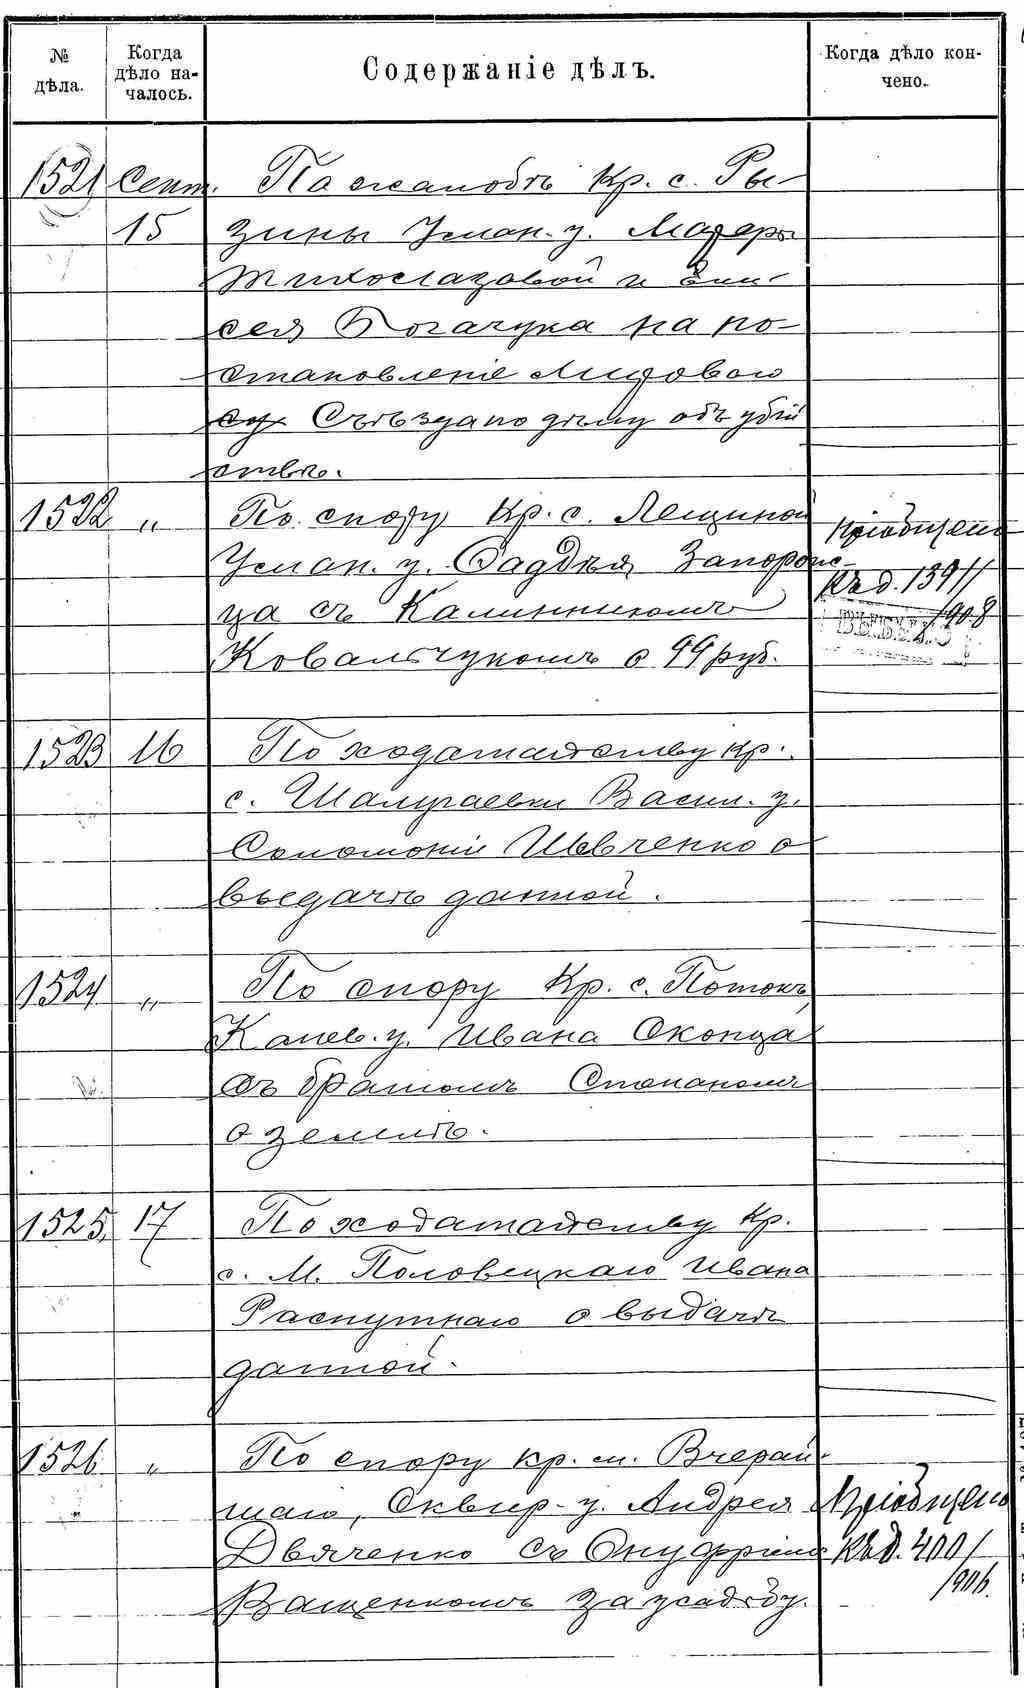 № дѣла.
Когда дѣло на-
чалось.
Содержаніе дѣлъ.
Когда дѣло кон-
чено.
1521 Сент. По жалобѣ Кр. с. Ры-
15 зины Уман. у.
и Ели-
сея Богачука на по-
становленіе Мирового
Съѣзда по дѣлу объ убій
ствѣ.
1522 " По спору Кр. с. Лещиной
Уман. у. Фаддѣя Запорож-
ца съ Калинникомъ
Ковальчукомъ о 99 руб.
Пріобщено
къ д. 1391/
1908
1523 16 По ходатайству кр.
с. Шамраевки Васил. у.
Соломоніи Шевченко о
выдачѣ данной.
1524 " По спору Кр. с. Потокъ,
Канев. у. Ивана Оконца
съ братомъ Степаномъ
о землѣ.
1525 17 По ходатайству Кр.
с. М. Половецкаго Ивана
Распутнаго о выдачѣ
данной.
1526 " По спору кр. м. Вчерай-
шаго, Сквир. у. Андрея
Двяченко съ Онуфріемъ
Ващенкомъ за усадьбу.
Пріобщено
къ д. 400/
1906.